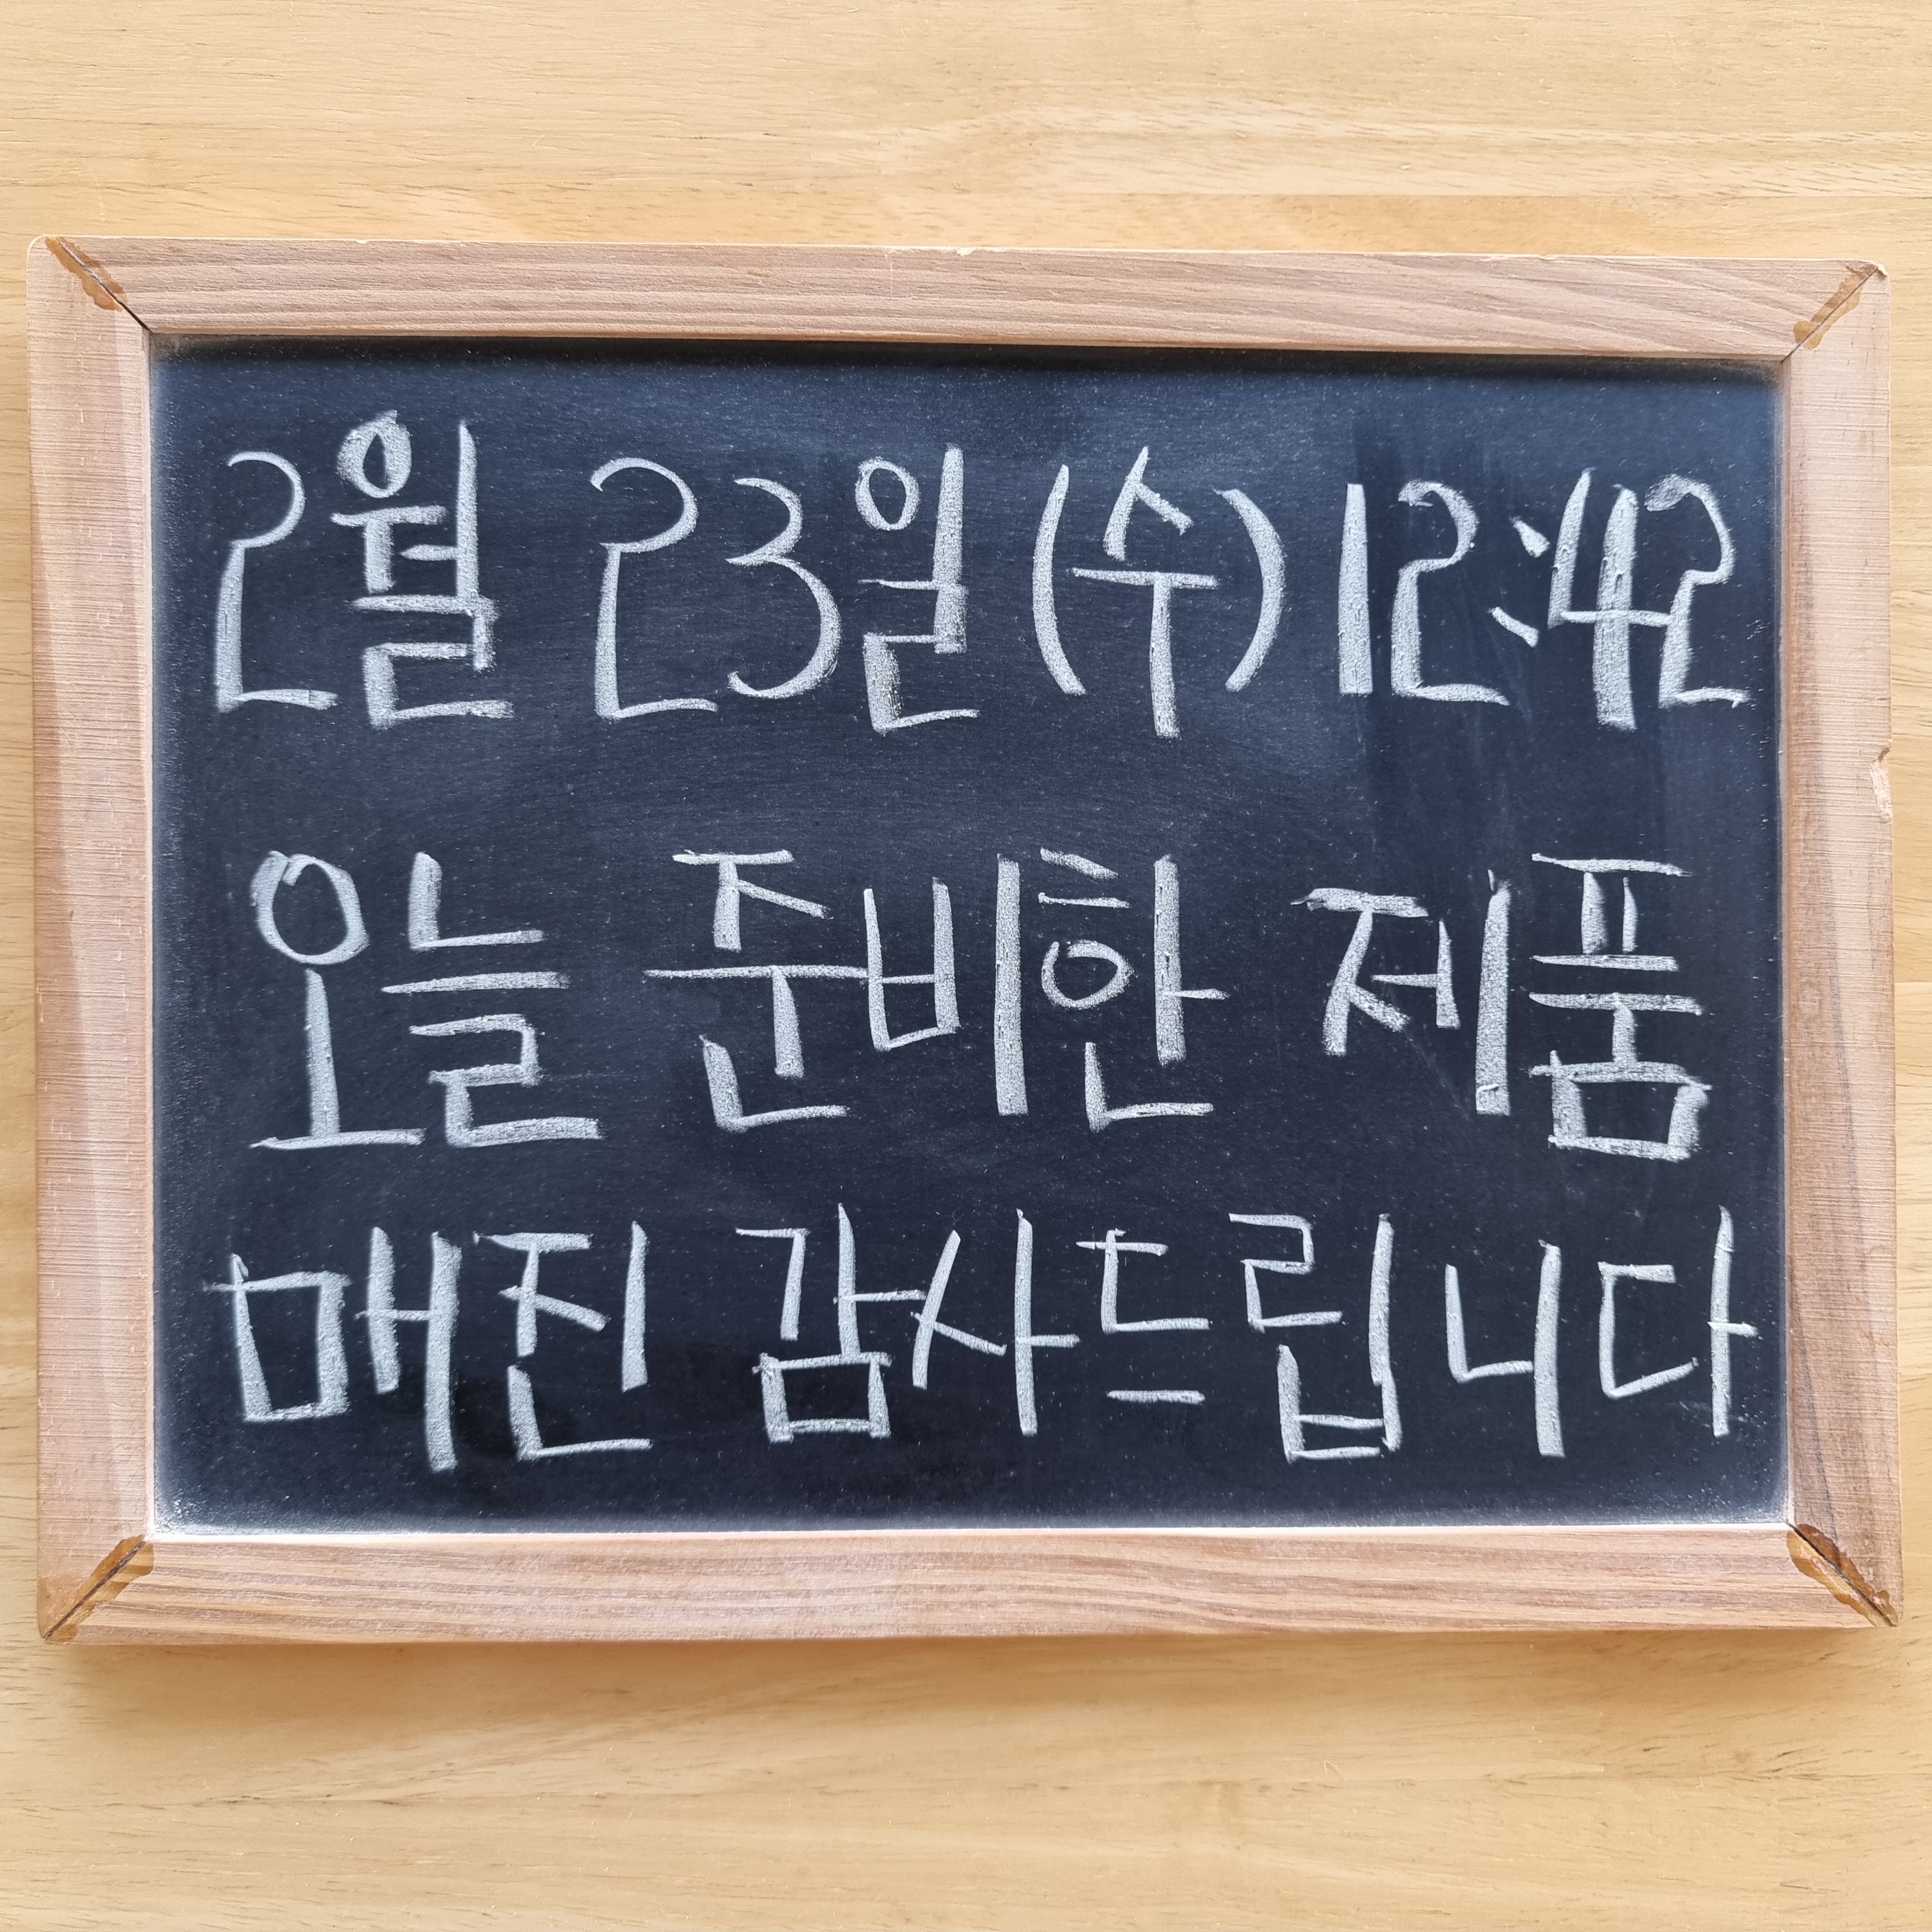 2월 23일(수) 12:42
오늘 준비한 제품
매진 감사드립니다